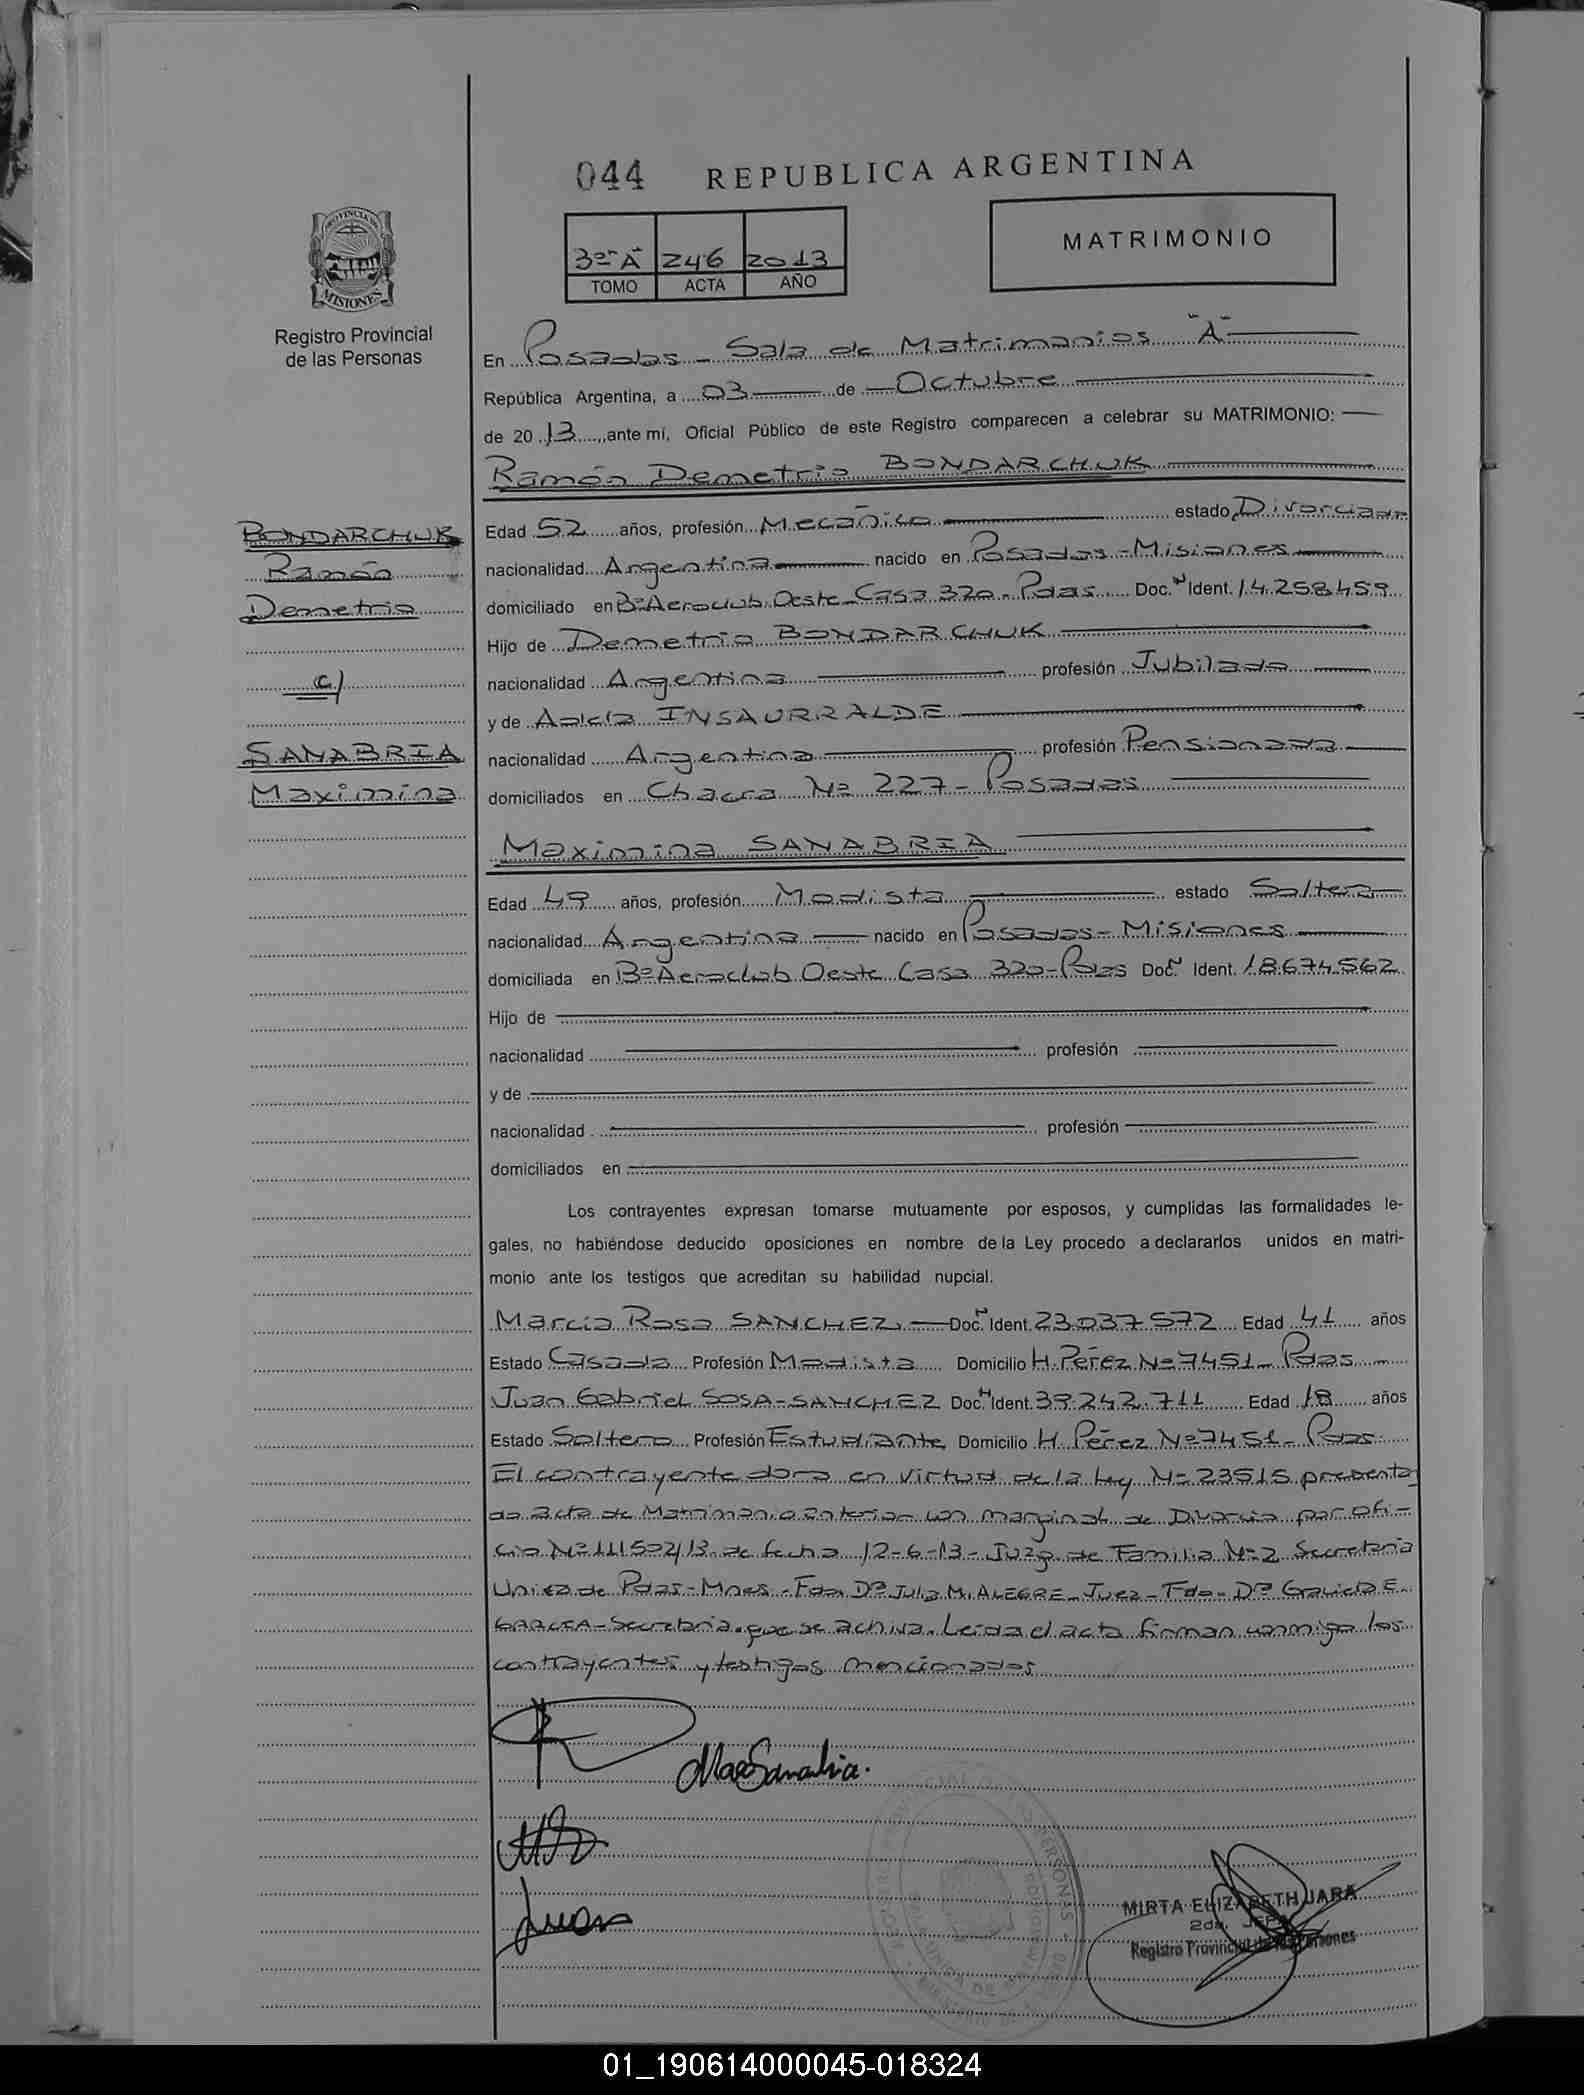 044 REPUBLICA ARGENTINA
MATRIMONIO
3º "A" 246 2013
TOMO ACTA AÑO
PROVINCIA DE
MISIONES
Registro Provincial
de las Personas
En Posadas - Sala de Matrimonios "A"
República Argentina, a 03 de Octubre
de 2013, ante mí, Oficial Público de este Registro comparecen a celebrar su MATRIMONIO:
Ramón Demetrio BONDARCHUK
BONDARCHUK
Ramón
Demetrio
c/
SANABRIA
Maximina
Edad 52 años, profesión Mecánico estado Divorciado
nacionalidad Argentina nacido en Posadas - Misiones
domiciliado en Bº Aeroclub Oeste Casa 320 - Pdas Doc. N Ident. 14.258.459
Hijo de Demetrio BONDARCHUK
nacionalidad Argentina profesión Jubilado
y de Adela INSAURRALDE
nacionalidad Argentina profesión Pensionada
domiciliados en Chacra Nº 227 - Posadas
Maximina SANABRIA
Edad 49 años, profesión Modista estado Soltera
nacionalidad Argentina nacido en Posadas - Misiones
domiciliada en Bº Aeroclub Oeste Casa 320 - Pdas Doc. N Ident. 18.674.562
Hijo de
nacionalidad profesión
y de
nacionalidad profesión
domiciliados en
Los contrayentes expresan tomarse mutuamente por esposos, y cumplidas las formalidades le-
gales, no habiéndose deducido oposiciones en nombre de la Ley procedo a declararlos unidos en matri-
monio ante los testigos que acreditan su habilidad nupcial.
Marcia Rosa SANCHEZ Doc. N Ident. 23.037.572 Edad 41 años
Estado Casada Profesión Modista Domicilio H. Pérez Nº 7451 - Pdas
Juan Gabriel SOSA-SANCHEZ Doc. N Ident. 39.242.711 Edad 18 años
Estado Soltero Profesión Estudiante Domicilio H. Pérez Nº 7451 - Pdas.
El contrayente en virtud de la Ley Nº 23515 presenta
do acta de Matrimonio anterior con marginal de Divorcio por ofi-
cio Nº 111502/13 de fecha 12-6-13 - Juzg. de Familia Nº 2 Secretaria
Unica de Pdas - Mnes - Fdo. Dra Julia M. ALEGRE - Juez - Fdo - Dra E.
GARCIA - Secretaria - que se achiva. Leida el acta firman conmigo los
contrayentes y testigos mencionados
MaxSanabria.
Juan
MIRTA ELIZABETH JARA
2da. JEFA
Registro Provincial de las Personas
01_190614000045-018324